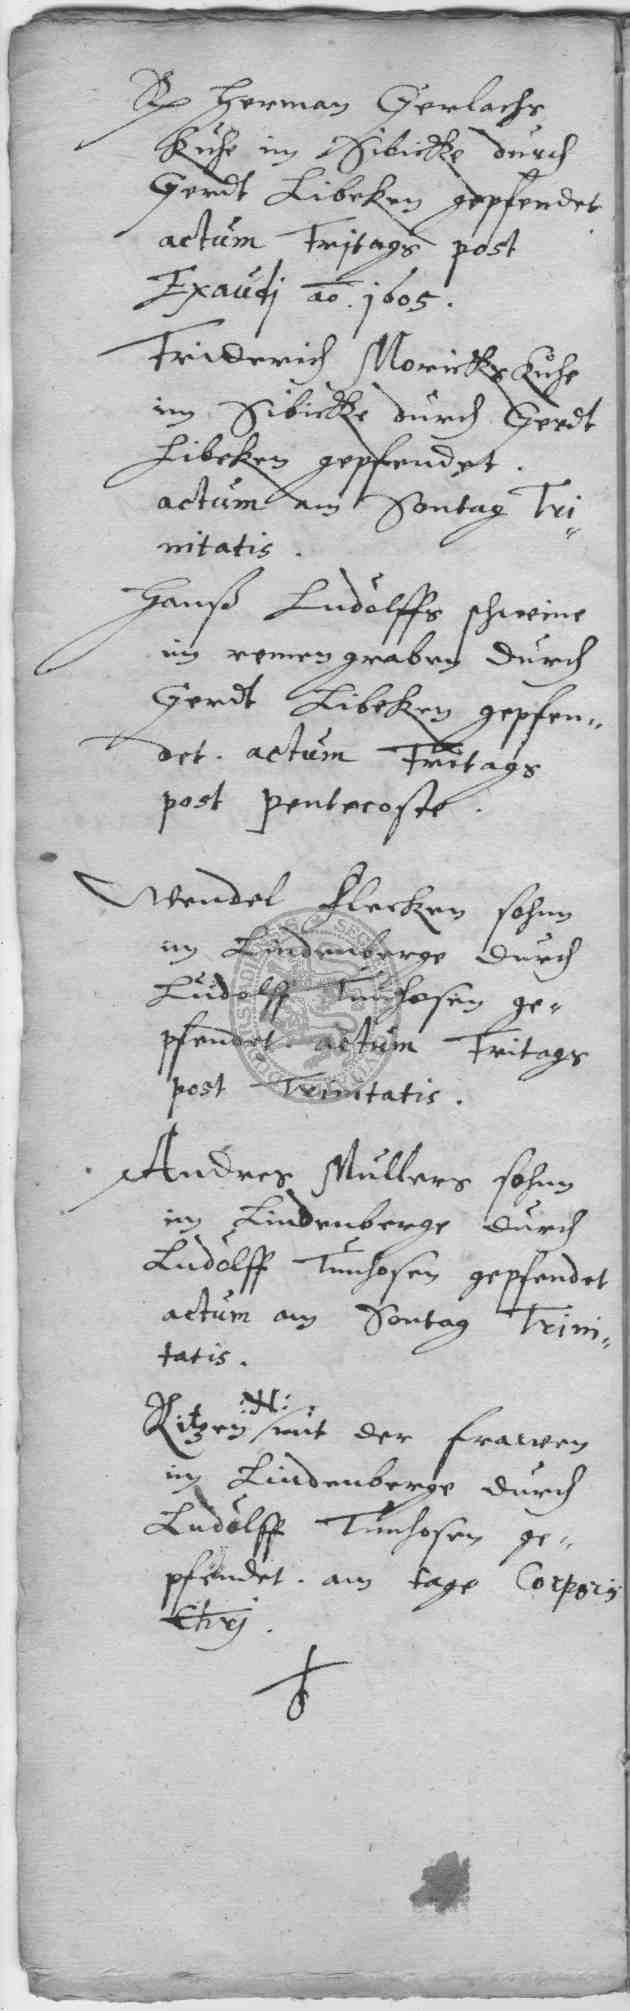 Herman Gerlachs
Kuhe im Sibicke durch
Gerdt Libeken gepfendet
actum Fritags post
Exaudj ao. 1605.
Friderich Morickes Kuhe
im Sibicke durch Gerdt
Libeken gepfendet.
actum am Sontag Tri„
nitatis.
Hanß Ludolffs schweine
im remen graben durch
Gerdt Libeken gepfen„
det. actum Fritags
post pentecoste.
Wendel Flecken sohnn
im Lindenberge durch
Ludolff Tunhosen ge„
pfendet. actum Fritags
post Trinitatis.
Andres Mullers sohnn
im Lindenberge durch
Ludolff Tunhosen gepfendet
actum am Sontag Trini„
tatis.
Ritzen mit der frawen
im Lindenberge durch
Ludolff Tunhosen ge„
pfendet. am tage Corporis
Chrj.